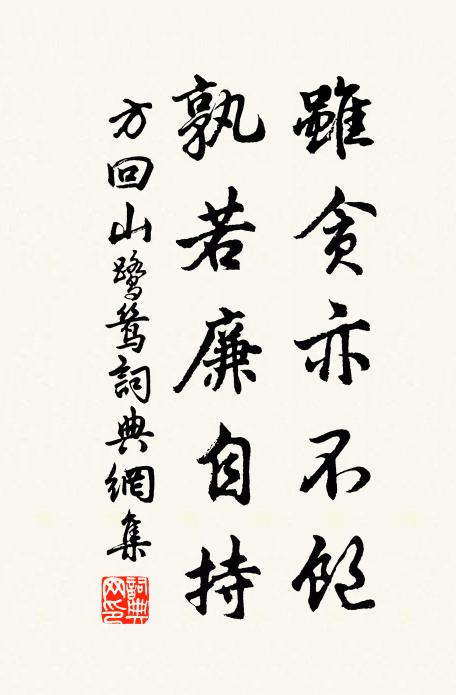 雖貪亦不飽
孰若廉自持
方回山鷺鷥詞典網集
詞典网印